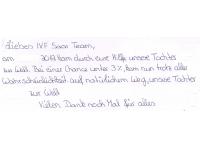 Liebes IVF Saar Team,
am 2017 kam durch eure Hilfe unsere Tochter
zur Welt. Bei einer Chance unter 3%, kam nun trotz aller
Wahrscheinlichkeit auf natürlichem Weg, unsere Tochter
zur Welt
Vielen Dank noch Mal für alles